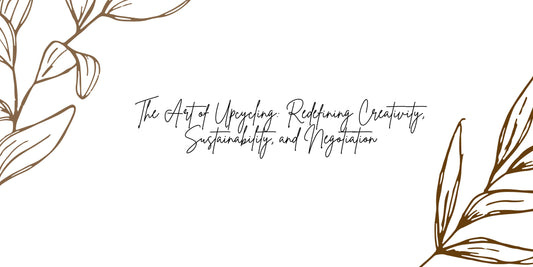 The Art of Upcycling: Redefining Creativity,
Sustainability, and Negotiation